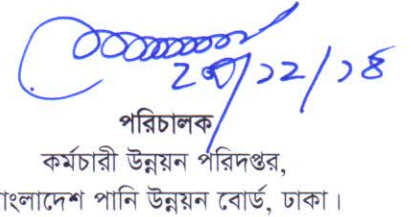 পরিচালক
কর্মচারী উন্নয়ন পরিদপ্তর,
বাংলাদেশ পানি উন্নয়ন বোর্ড, ঢাকা।